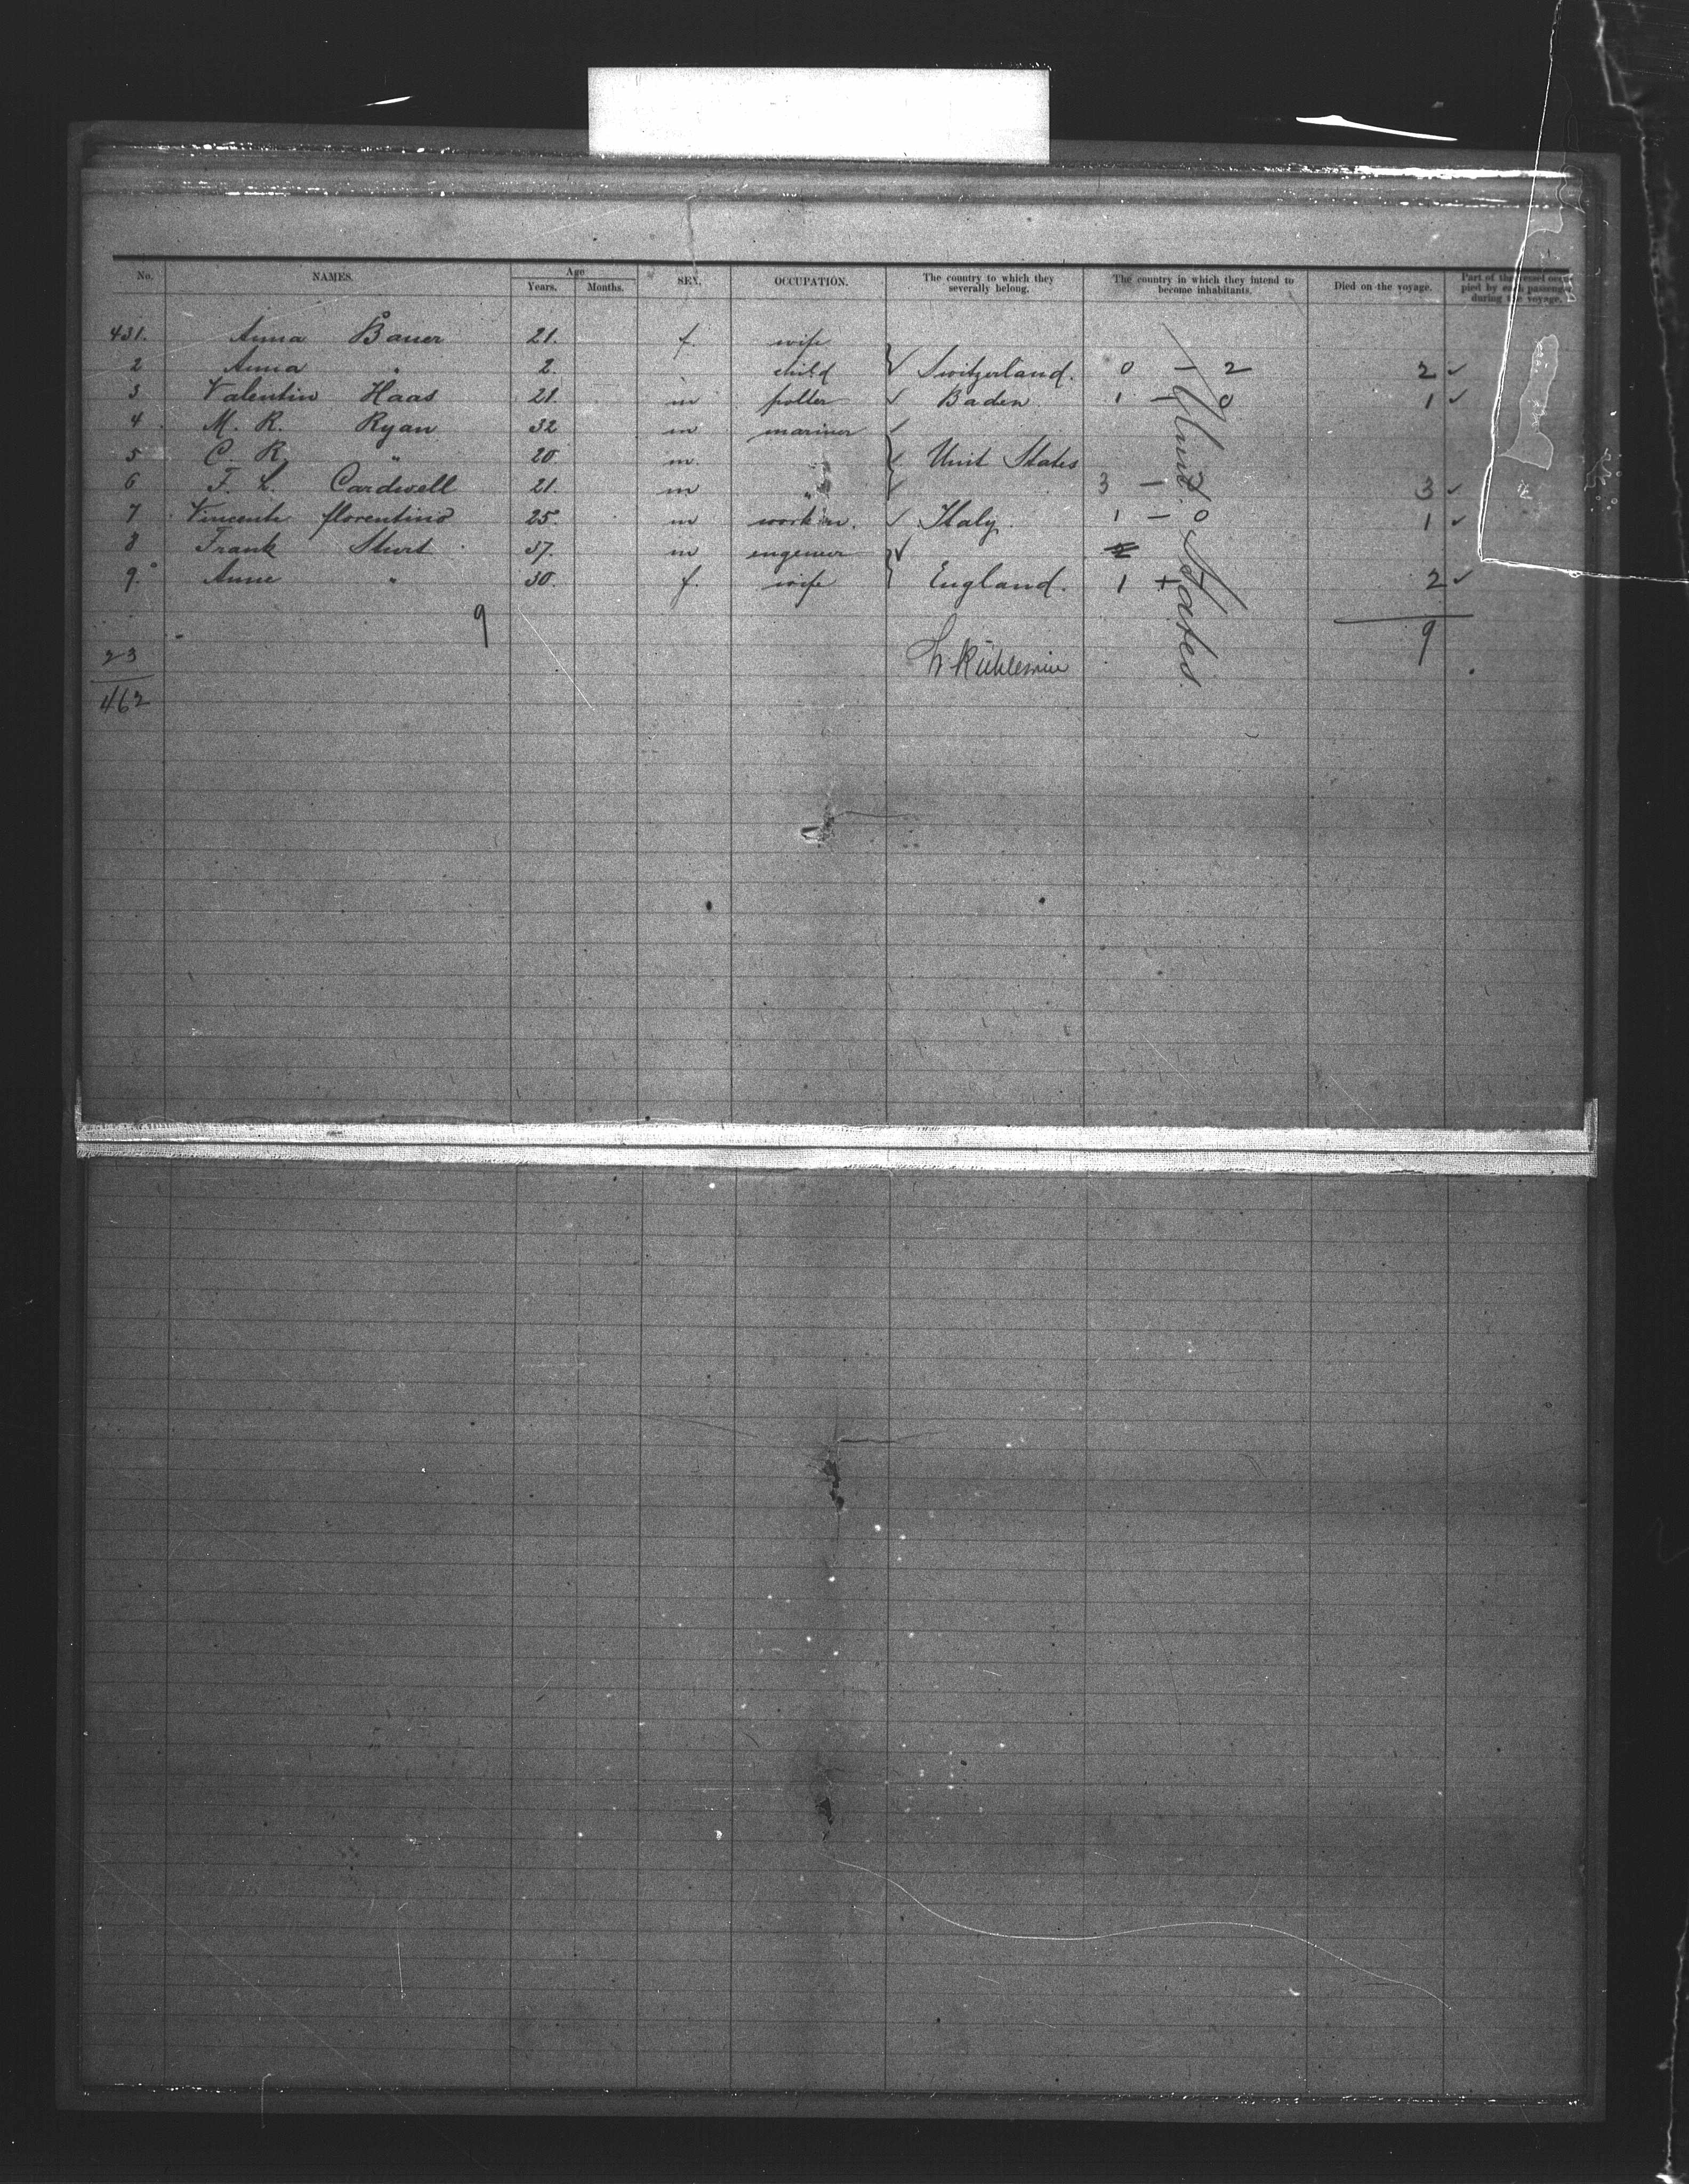 No. NAMES. Age Years. Months. SEX. OCCUPATION. The country to which they severally belong. The country in which they intend to become inhabitants. Died on the voyage. Part of the vessel occupied by each passenger during the voyage.
431. Anna Bauer 21. f. wife
2 Anna " 2. child Switzerland. 0 - 2 2 ✓
3 Valentin Haas 21. m potter ✓ Baden 1 - 0 1 ✓
4 M. R. Ryan 32 m mariner ✓
5 C. R. " 20 m. " ✓ Unit States
6 F. L. Cardwell 21. m " ✓ 3 - 0 3 ✓
7 Vincente florentino 25. m workm. ✓ Italy. 1 - 0 1 ✓
8 Frank Sturt 37. m engeneer ✓ 2
9. Anne " 30. f. wife England. 1 + 2 ✓
Unit. States
9 9
23
462